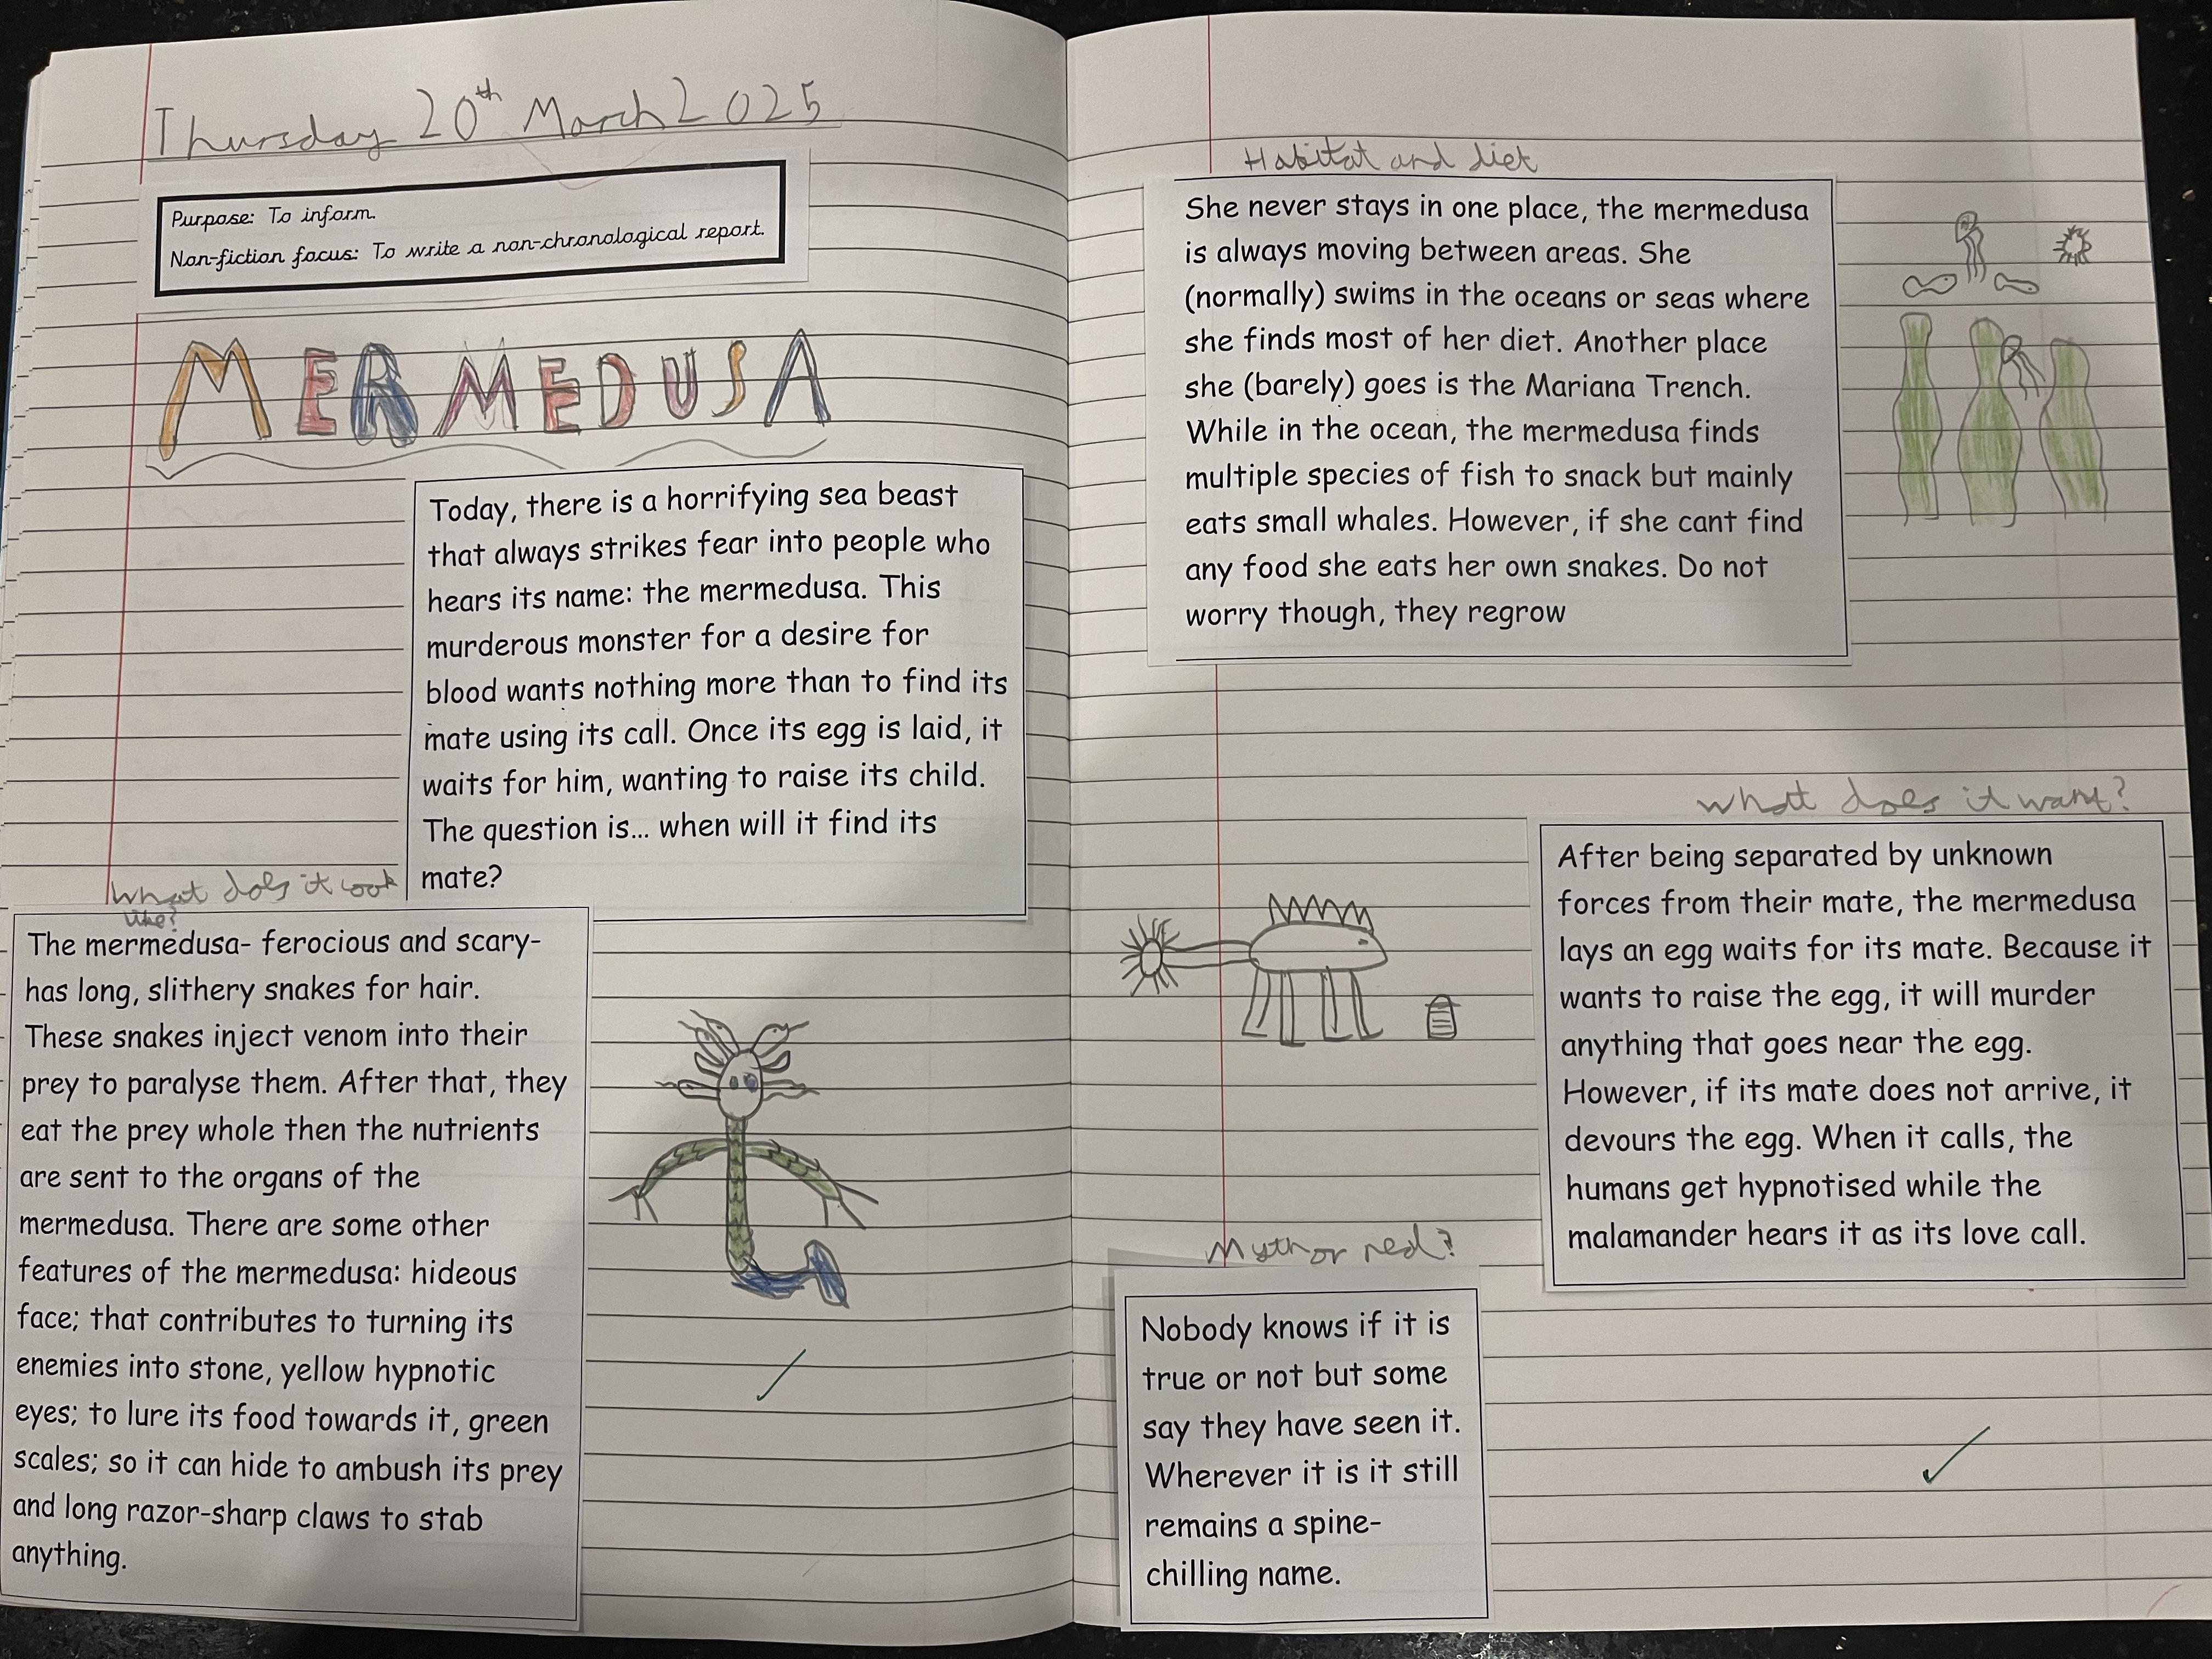 Thursday 20th March 2025
Purpose: To inform.
Non-fiction focus: To write a non-chronological report.
MERMEDUSA
Today, there is a horrifying sea beast
that always strikes fear into people who
hears its name: the mermedusa. This
murderous monster for a desire for
blood wants nothing more than to find its
mate using its call. Once its egg is laid, it
waits for him, wanting to raise its child.
The question is... when will it find its
mate?
What does it look
like?
The mermedusa- ferocious and scary-
has long, slithery snakes for hair.
These snakes inject venom into their
prey to paralyse them. After that, they
eat the prey whole then the nutrients
are sent to the organs of the
mermedusa. There are some other
features of the mermedusa: hideous
face; that contributes to turning its
enemies into stone, yellow hypnotic
eyes; to lure its food towards it, green
scales; so it can hide to ambush its prey
and long razor-sharp claws to stab
anything.
Habitat and diet
She never stays in one place, the mermedusa
is always moving between areas. She
(normally) swims in the oceans or seas where
she finds most of her diet. Another place
she (barely) goes is the Mariana Trench.
While in the ocean, the mermedusa finds
multiple species of fish to snack but mainly
eats small whales. However, if she cant find
any food she eats her own snakes. Do not
worry though, they regrow
What does it want?
After being separated by unknown
forces from their mate, the mermedusa
lays an egg waits for its mate. Because it
wants to raise the egg, it will murder
anything that goes near the egg.
However, if its mate does not arrive, it
devours the egg. When it calls, the
humans get hypnotised while the
malamander hears it as its love call.
Myth or real?
Nobody knows if it is
true or not but some
say they have seen it.
Wherever it is it still
remains a spine-
chilling name.